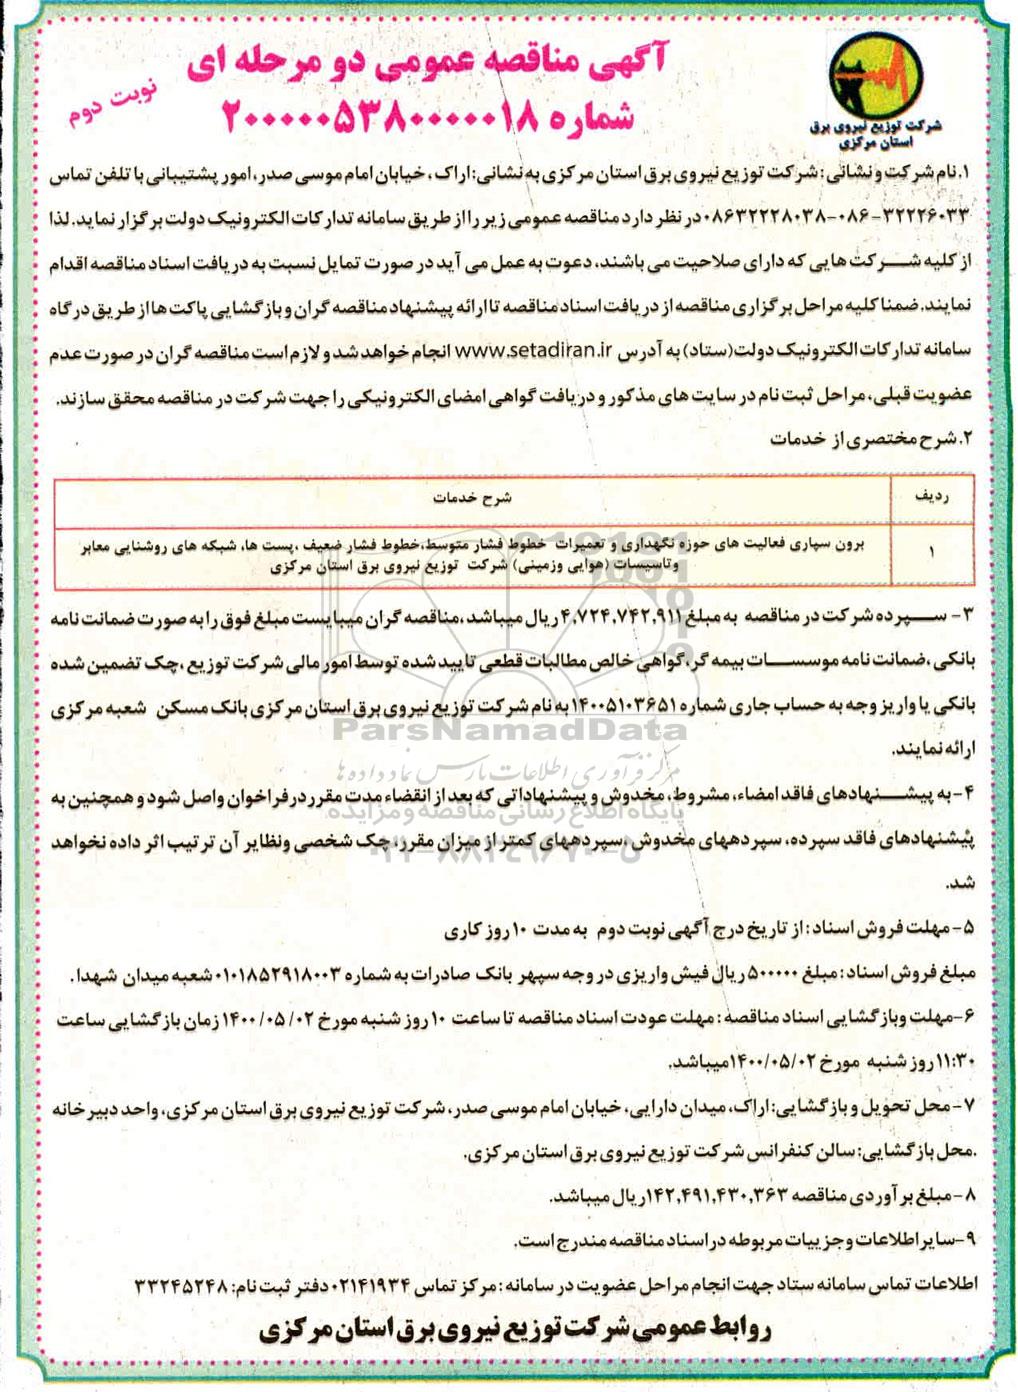 آگهی مناقصه عمومی دو مرحله ای
شماره ۲۰۰۰۰۰۵۳۸۰۰۰۰۰۱۸
نوبت دوم
شرکت توزیع نیروی برق
استان مرکزی
۱.نام شرکت و نشانی: شرکت توزیع نیروی برق استان مرکزی به نشانی:اراک، خیابان امام موسی صدر، امور پشتیبانی با تلفن تماس
۰۸۶-۳۲۲۲۶۰۳۳-۰۸۶۳۲۲۲۸۰۳۸ در نظر دارد مناقصه عمومی زیر را از طریق سامانه تدارکات الکترونیک دولت برگزار نماید. لذا
از کلیه شرکت هایی که دارای صلاحیت می باشند، دعوت به عمل می آید در صورت تمایل نسبت به دریافت اسناد مناقصه اقدام
نمایند. ضمنا کلیه مراحل برگزاری مناقصه از دریافت اسناد مناقصه تا ارائه پیشنهاد مناقصه گران و بازگشایی پاکت ها از طریق درگاه
سامانه تدارکات الکترونیک دولت(ستاد) به آدرس www.setadiran.ir انجام خواهد شد و لازم است مناقصه گران در صورت عدم
عضویت قبلی، مراحل ثبت نام در سایت های مذکور و دریافت گواهی امضای الکترونیکی را جهت شرکت در مناقصه محقق سازند.
۲. شرح مختصری از خدمات
ردیف شرح خدمات
۱ برون سپاری فعالیت های حوزه نگهداری و تعمیرات خطوط فشار متوسط،خطوط فشار ضعیف ،پست ها، شبکه های روشنایی معابر
وتاسیسات (هوایی وزمینی) شرکت توزیع نیروی برق استان مرکزی
۳- سپرده شرکت در مناقصه به مبلغ ۴,۷۲۴,۷۴۲,۹۱۱ ریال میباشد ،مناقصه گران میبایست مبلغ فوق را به صورت ضمانت نامه
بانکی ،ضمانت نامه موسسات بیمه گر، گواهی خالص مطالبات قطعی تایید شده توسط امور مالی شرکت توزیع ،چک تضمین شده
بانکی یا واریز وجه به حساب جاری شماره ۱۴۰۰۵۱۰۳۶۵۱ به نام شرکت توزیع نیروی برق استان مرکزی بانک مسکن شعبه مرکزی
ارائه نمایند.
ParsNamadData
مرکز فرآوری اطلاعات پارس نماد داده ها
پایگاه اطلاع رسانی مناقصه و مزایده
۰۲۱-۸۸۳۴۹۶۷۰-۵
۴- به پیشنهادهای فاقد امضاء، مشروط، مخدوش و پیشنهاداتی که بعد از انقضاء مدت مقرر در فراخوان واصل شود و همچنین به
پیشنهادهای فاقد سپرده، سپردههای مخدوش ،سپردههای کمتر از میزان مقرر، چک شخصی ونظایر آن ترتیب اثر داده نخواهد
شد.
۵- مهلت فروش اسناد : از تاریخ درج آگهی نوبت دوم به مدت ۱۰ روز کاری
مبلغ فروش اسناد : مبلغ ۵۰۰۰۰۰ ریال فیش واریزی در وجه سپهر بانک صادرات به شماره ۰۱۰۱۸۵۲۹۱۸۰۰۳ شعبه میدان شهدا .
۶-مهلت وبازگشایی اسناد مناقصه : مهلت عودت اسناد مناقصه تا ساعت ۱۰ روز شنبه مورخ ۱۴۰۰/۰۵/۰۲ زمان بازگشایی ساعت
۱۱:۳۰ روز شنبه مورخ ۱۴۰۰/۰۵/۰۲ میباشد.
۷- محل تحویل و بازگشایی:اراک، میدان دارایی، خیابان امام موسی صدر، شرکت توزیع نیروی برق استان مرکزی، واحد دبیرخانه
.محل بازگشایی: سالن کنفرانس شرکت توزیع نیروی برق استان مرکزی.
۸- مبلغ برآوردی مناقصه ۱۴۲,۴۹۱,۴۳۰,۳۶۳ ریال میباشد.
۹-سایر اطلاعات و جزییات مربوطه در اسناد مناقصه مندرج است.
اطلاعات تماس سامانه ستاد جهت انجام مراحل عضویت در سامانه : مرکز تماس ۰۲۱۴۱۹۳۴ دفتر ثبت نام: ۳۳۲۴۵۲۴۸
روابط عمومی شرکت توزیع نیروی برق استان مرکزی